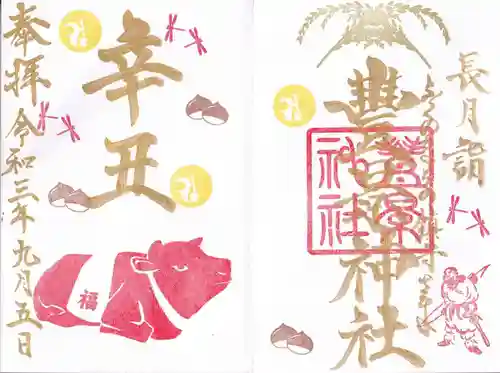 長月詣
豊景神社
豊景神社
辛丑
奉拝 令和三年九月五日
福